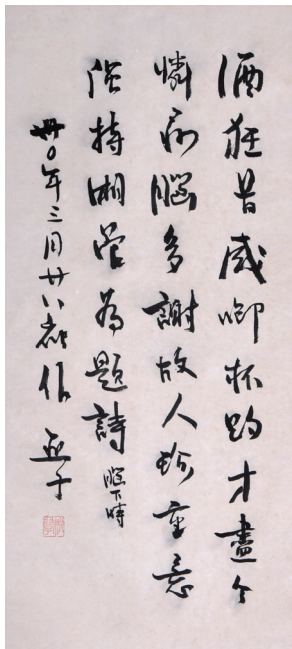 酒狂昔感啣杯才盡今
憐病腦多謝故人珍重意
強持湘管為題詩 腦下時
卅〇年三月廿八夜作 亞子